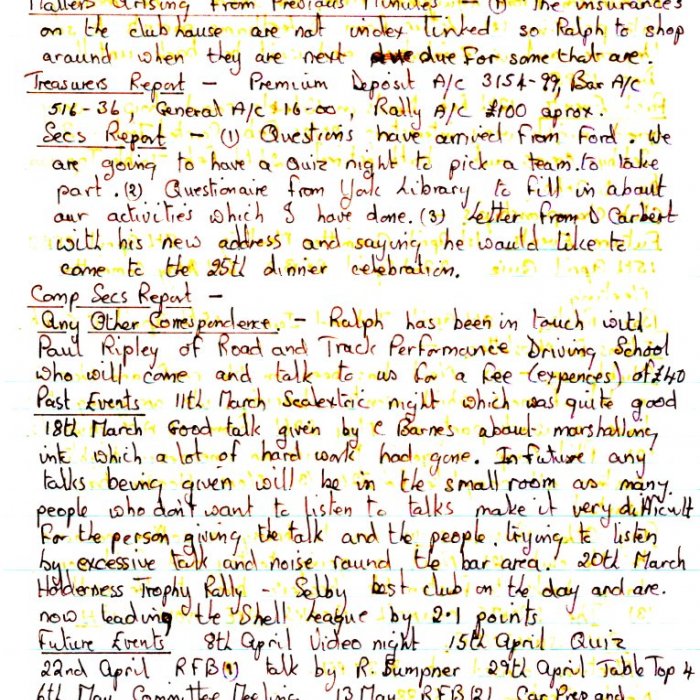 Matters Arising From Previous Minutes - (1) The insurances
on the clubhouse are not index linked so Ralph to shop
around when they are next due for some that are.
Treasurers Report - Premium Deposit A/c 3154-99, Bar A/c
516-36, General A/c 16-00, Rally A/c £100 aprox.
Secs Report - (1) Questions have arrived from Ford. We
are going to have a Quiz night to pick a team to take
part. (2) Questionaire from York Library to fill in about
our activities which I have done. (3) Letter from D Carbert
with his new address and saying he would like to
come to the 25th dinner celebration.
Comp Secs Report -
Any Other Correspondence - Ralph has been in touch with
Paul Ripley of Road and Track Performance Driving School
who will come and talk to us for a fee (expences) of £40
Past Events 11th March Scalextric night which was quite good
18th March Good talk given by C Barnes about marshalling
into which a lot of hard work had gone. In future any
talks being given will be in the small room as many
people who don't want to listen to talks make it very difficult
for the person giving the talk and the people trying to listen
by excessive talk and noise round the bar area. 20th March
Holderness Trophy Rally - Selby best club on the day and are
now leading the Shell League by 2.1 points
Future Events 8th April Video night 15th April Quiz
22nd April RFB(1) talk by R. Bumpner 29th April Table Top 4
6th May Committee Meeting 13 May RFB(2) Car Prep and